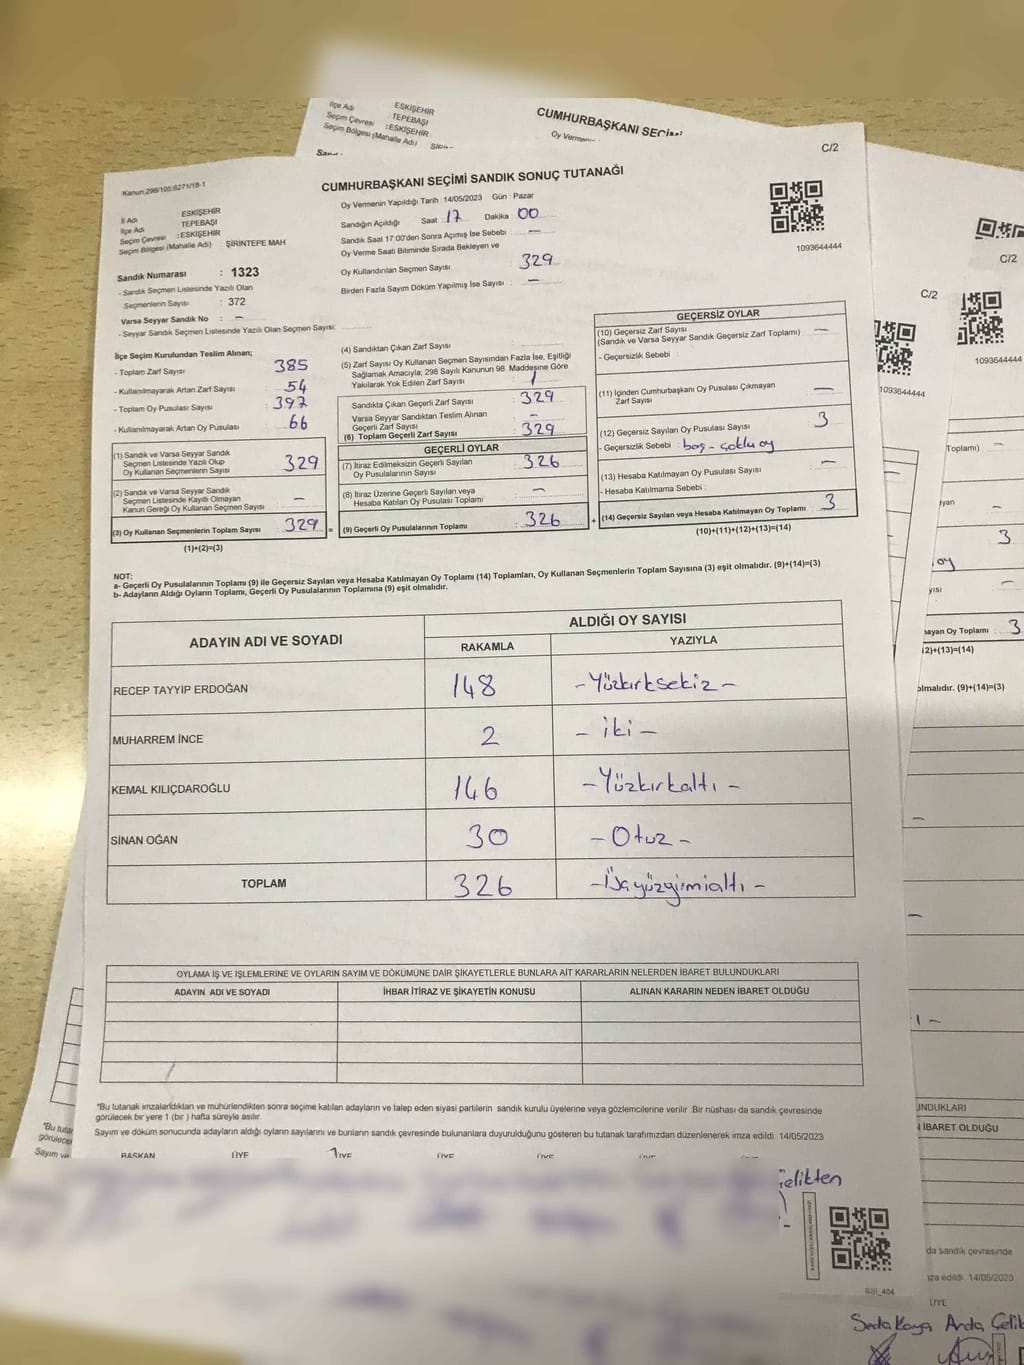 İlçe Adı
ESKİŞEHİR
TEPEBAŞI
Seçim Çevresi :ESKİŞEHİR
Seçim Bölgesi (Mahalle Adı)
CUMHURBAŞKANI SEÇİ
Oy Vermen
C/2
Kanun:298/105:6271/18-1
CUMHURBAŞKANI SEÇİMİ SANDIK SONUÇ TUTANAĞI
Oy Vermenin Yapıldığı Tarih 14/05/2023 Gün : Pazar
İl Adı ESKİŞEHİR
İlçe Adı TEPEBAŞI
Seçim Çevresi :ESKİŞEHİR
Seçim Bölgesi (Mahalle Adı) ŞİRİNTEPE MAH
Sandığın Açıldığı Saat 17 Dakika 00
Sandık Saat 17:00'den Sonra Açımış İse Sebebi : —
Oy Verme Saati Bitiminde Sırada Bekleyen ve
Oy Kullandırılan Seçmen Sayısı : 329
Birden Fazla Sayım Döküm Yapılmış İse Sayısı : —
1093644444
Sandık Numarası : 1323
- Sandık Seçmen Listesinde Yazılı Olan
Seçmenlerin Sayısı : 372
Varsa Seyyar Sandık No : —
- Seyyar Sandık Seçmen Listesinde Yazılı Olan Seçmen Sayısı:
İlçe Seçim Kurulundan Teslim Alınan;
- Toplam Zarf Sayısı : 385
- Kullanılmayarak Artan Zarf Sayısı : 54
- Toplam Oy Pusulası Sayısı : 397
- Kullanılmayarak Artan Oy Pusulası : 66
(1) Sandık ve Varsa Seyyar Sandık
Seçmen Listesinde Yazılı Olup
Oy Kullanan Seçmenlerin Sayısı 329
(2) Sandık ve Varsa Seyyar Sandık
Seçmen Listesinde Kayıtlı Olmayan
Kanun Gereği Oy Kullanan Seçmen Sayısı —
(3) Oy Kullanan Seçmenlerin Toplam Sayısı : 329 =
(1)+(2)=(3)
(4) Sandıktan Çıkan Zarf Sayısı
(5) Zarf Sayısı Oy Kullanan Seçmen Sayısından Fazla İse, Eşitliği
Sağlamak Amacıyla; 298 Sayılı Kanunun 98. Maddesine Göre
Yakılarak Yok Edilen Zarf Sayısı
Sandıkta Çıkan Geçerli Zarf Sayısı : 329
Varsa Seyyar Sandıktan Teslim Alınan
Geçerli Zarf Sayısı : —
(6) Toplam Geçerli Zarf Sayısı : 329
GEÇERLİ OYLAR
(7) İtiraz Edilmeksizin Geçerli Sayılan
Oy Pusulalarının Sayısı : 326
(8) İtiraz Üzerine Geçerli Sayılan veya
Hesaba Katılan Oy Pusulası Toplamı : —
(9) Geçerli Oy Pusulalarının Toplamı : 326 +
GEÇERSİZ OYLAR
(10) Geçersiz Zarf Sayısı
(Sandık ve Varsa Seyyar Sandık Geçersiz Zarf Toplamı) : —
- Geçersizlik Sebebi
(11) İçinden Cumhurbaşkanı Oy Pusulası Çıkmayan
Zarf Sayısı —
(12) Geçersiz Sayılan Oy Pusulası Sayısı 3
- Geçersizlik Sebebi : boş - çoklu oy
(13) Hesaba Katılmayan Oy Pusulası Sayısı : —
- Hesaba Katılmama Sebebi :
(14) Geçersiz Sayılan veya Hesaba Katılmayan Oy Toplamı : 3
(10)+(11)+(12)+(13)=(14)
NOT:
a- Geçerli Oy Pusulalarının Toplamı (9) ile Geçersiz Sayılan veya Hesaba Katılmayan Oy Toplamı (14) Toplamları, Oy Kullanan Seçmenlerin Toplam Sayısına (3) eşit olmalıdır. (9)+(14)=(3)
b- Adayların Aldığı Oyların Toplamı, Geçerli Oy Pusulalarının Toplamına (9) eşit olmalıdır.
ADAYIN ADI VE SOYADI
ALDIĞI OY SAYISI
RAKAMLA YAZIYLA
RECEP TAYYİP ERDOĞAN 148 -Yüzkırksekiz-
MUHARREM İNCE 2 - iki -
KEMAL KILIÇDAROĞLU 146 -Yüzkırkaltı -
SİNAN OĞAN 30 - Otuz -
TOPLAM 326 -Üçyüzyirmialtı -
OYLAMA İŞ VE İŞLEMLERİNE VE OYLARIN SAYIM VE DÖKÜMÜNE DAİR ŞİKAYETLERLE BUNLARA AİT KARARLARIN NELERDEN İBARET BULUNDUKLARI
ADAYIN ADI VE SOYADI İHBAR İTİRAZ VE ŞİKAYETİN KONUSU ALINAN KARARIN NEDEN İBARET OLDUĞU
"Bu tutanak imzalandıktan ve mühürlendikten sonra seçime katılan adayların ve talep eden siyasi partilerin sandık kurulu üyelerine veya gözlemcilerine verilir. Bir nüshası da sandık çevresinde
görülecek bir yere 1 (bir ) hafta süreyle asılır.
Sayım ve döküm sonucunda adayların aldığı oyların sayılarını ve bunların sandık çevresinde bulunanlara duyurulduğunu gösteren bu tutanak tarafımızdan düzenlenerek imza edildi 14/05/2023
BAŞKAN ÜYE ÜYE ÜYE ÜYE ÜYE
C/2
C/2
1093644444
1093644444
Toplamı) —
3
oy
mayan Oy Toplamı : 3
12)+(13)=(14)
olmalıdır. (9)+(14)=(3)
UNDUKLARI
İBARET OLDUĞU
da sandık çevresinde
imza edildi 14/05/2023
ÜYE
Seda Kaya Arda Çelik
"Bu tuta
görülece
Sayım ve